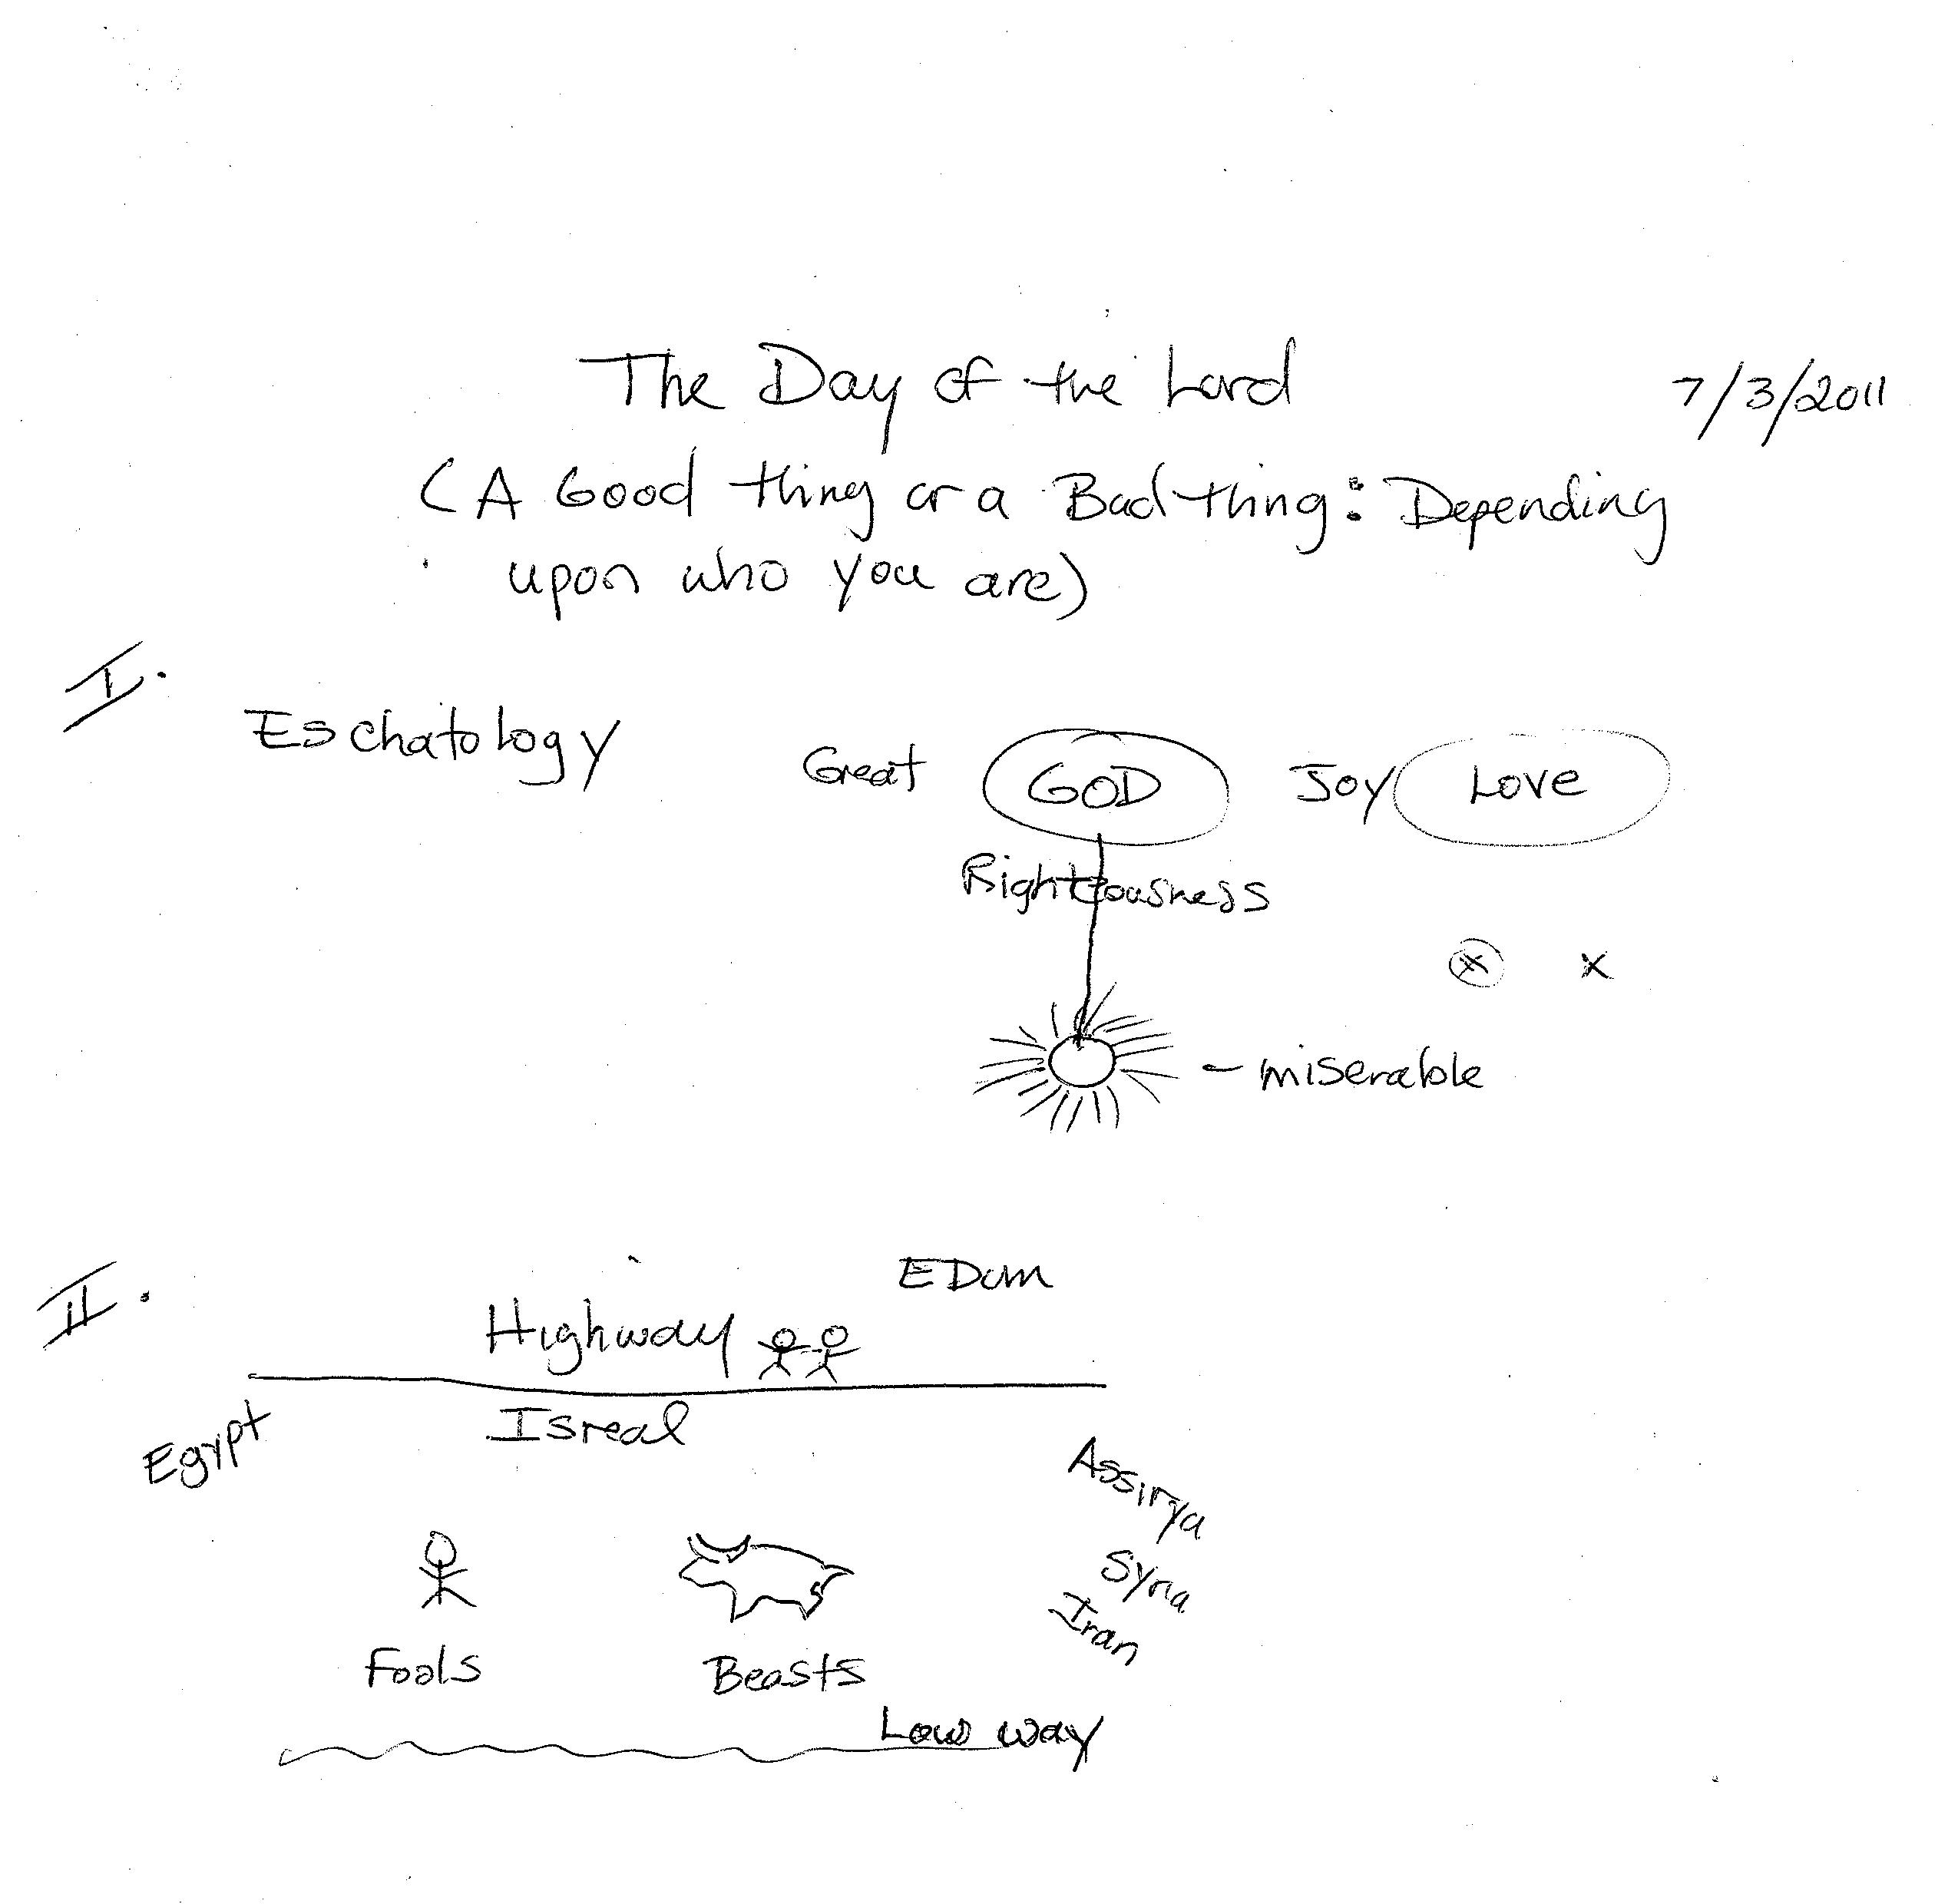 The Day of the Lord 7/3/2011
(A Good thing or a Bad thing: Depending
upon who you are)
I.
Eschatology
Great GOD Joy Love
Righteousness
x x
- miserable
II.
EDom
Highway
Isreal
Egypt
Assirya
Syria
Iran
Fools Beasts
Low way